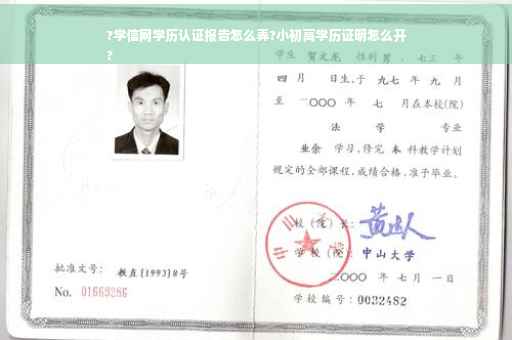 ?学信网学历认证报告怎么弄?小初高学历证明怎么开
?
学生 贺文龙 性别 男 , 七三 年
四 月 日生,于 九七 年 九 月
至 二〇〇〇 年 七 月在本校(院)
法 学 专业
业余 学习,修完 本 科教学计划
规定的全部课程,成绩合格,准予毕业。
校 (院) 长:
学 校 (院): 中山大学
二〇〇〇 年 七 月 一 日
批准文号: 教直[1993]8号
No. 01669286
学校编号: 0032482